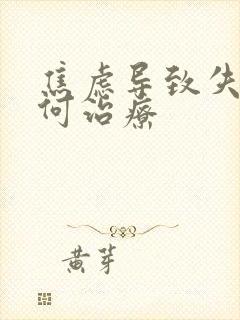 焦虑导致失
何治疗
黄芽